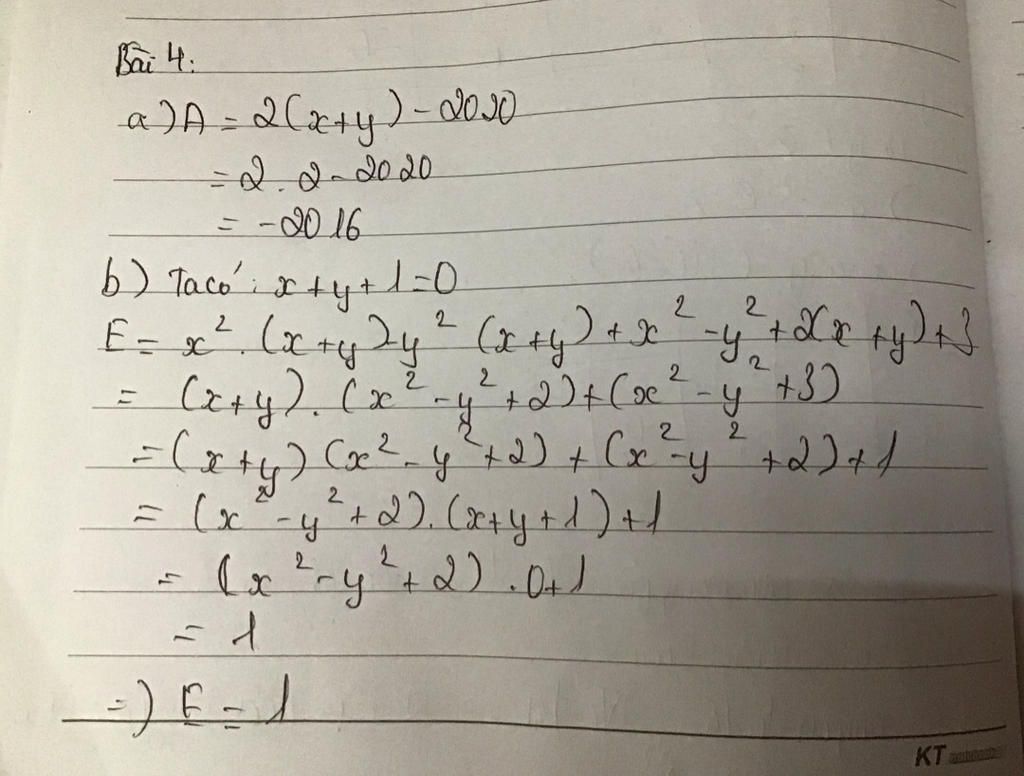 Bài 4:
a) A = 2(x+y) - 2020
= 2 . 2 - 2020
= -2016
b) Ta có: x+y+1=0
E = x². (x+y) - y² (x+y) + x² - y² + 2(x+y)+3
= (x+y). (x² - y² + 2) + (x² - y² + 3)
= (x+y) (x² - y² + 2) + (x² - y² + 2) + 1
= (x² - y² + 2). (x+y+1) + 1
= (x² - y² + 2) . 0+1
= 1
=) E = 1
KT